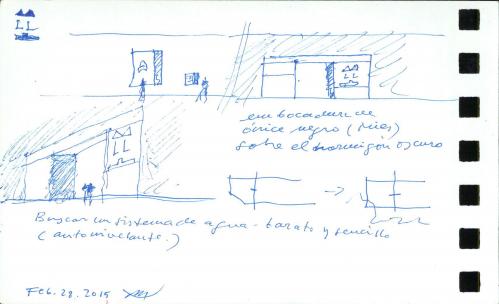 LL
LL
LL
embocadura de
ónice negro (Mies)
sobre el hormigón oscuro
Buscar un sistema de agua - barato y sencillo
(autonivelante.)
Feb. 28. 2015